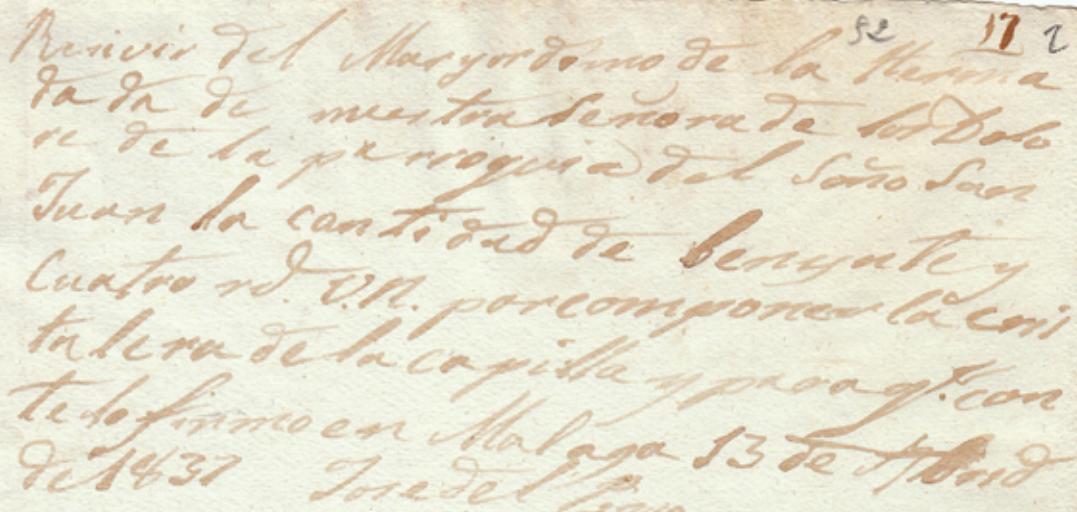 52 17 2
Recivir del Mayordomo de la Herma
da da de nuestra señora de los Dolo
re de la pª rroquia del Soño San
Juan la cantidad de benynte y
Cuatro rs. V.N. por componer la cris
talera de la capilla y para q.e con
te lo firmo en Malaga 13 de Abrid
de 1837 Jose del